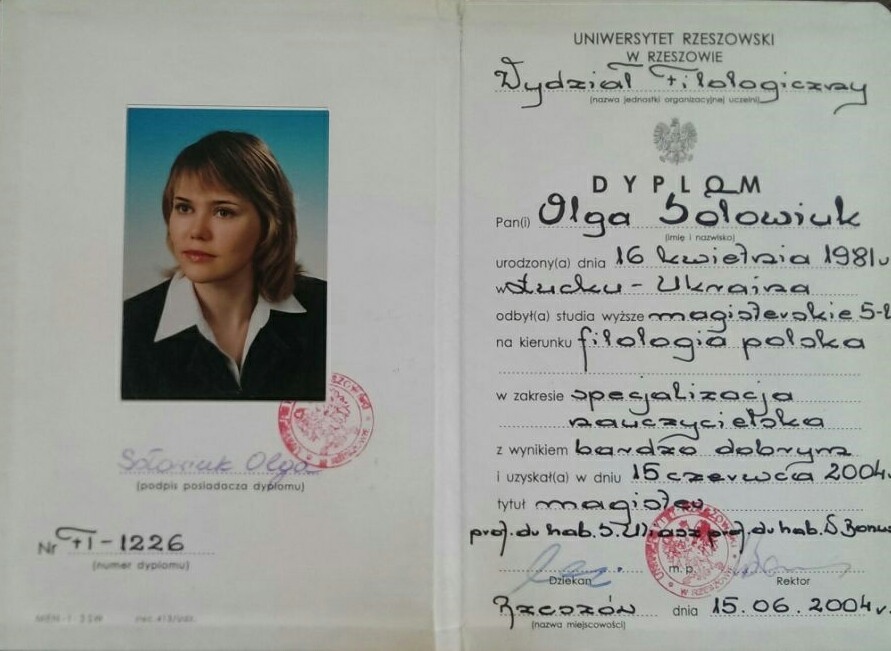 Sołowiuk Olga
(podpis posiadacza dyplomu)
Nr FI-1226
(numer dyplomu)
UNIWERSYTET RZESZOWSKI
W RZESZOWIE
Wydział Filologiczny
(nazwa jednostki organizacyjnej uczelni)
DYPLOM
Pan(i) Olga Sołowiuk
(imię i nazwisko)
urodzony(a) dnia 16 kwietnia 1981
w Łucku - Ukraina
odbył(a) studia wyższe magisterskie 5-l
na kierunku filologia polska
w zakresie specjalizacja
nauczycielska
z wynikiem bardzo dobrym
i uzyskał(a) w dniu 15 czerwca 2004
tytuł magister
prof. dr hab. S. Uliasz prof. dr hab. W. Bonus
Dziekan m.p. Rektor
Rzeszów dnia 15.06.2004 r.
(nazwa miejscowości)